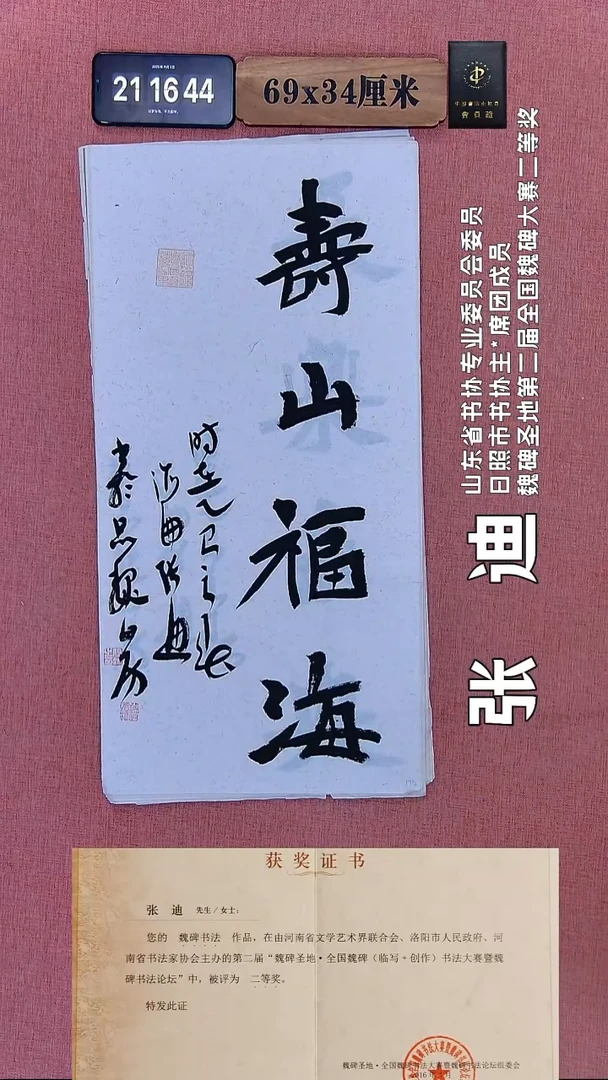 21 16 44
69x34厘米
壽山福海
山东省书协专业委员会委员
日照市书协主*席团成员
魏碑圣地第二届全国魏碑大赛二等奖
张 迪
获奖证书
张 迪 先生/女士：
您的 魏碑书法 作品，在由河南省文学艺术界联合会、洛阳市人民政府、河
南省书法家协会主办的第二届“魏碑圣地·全国魏碑（临写+创作）书法大赛暨魏
碑书法论坛”中，被评为 二等奖。
特发此证
魏碑圣地·全国魏碑书法大赛暨魏碑书法论坛组委会